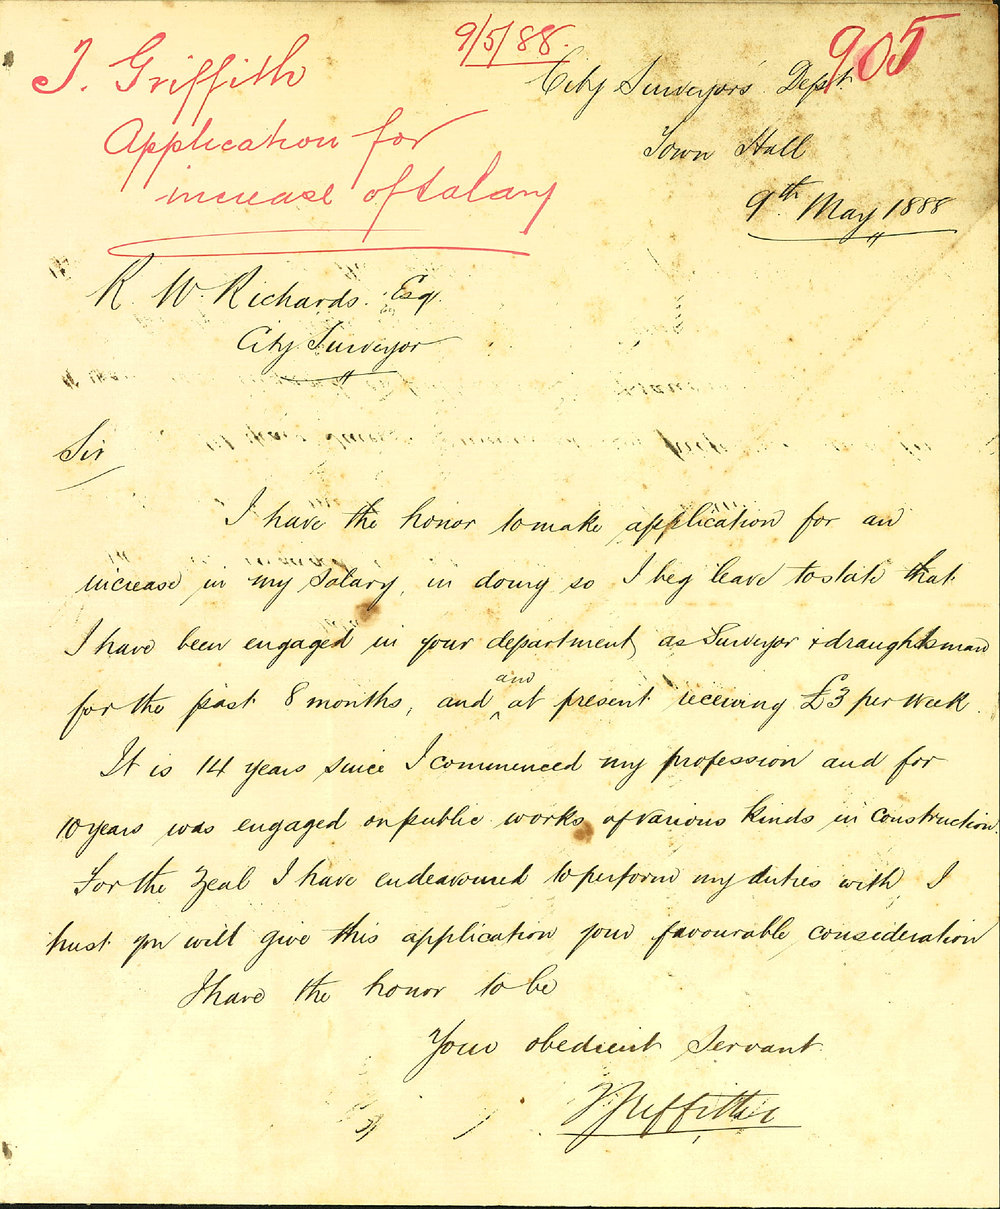 9/5/88.
905
T. Griffith
Application for
increase of salary
City Surveyors' Dept.
Town Hall
9th May 1888
R. W. Richards. Esq.
City Surveyor
Sir
I have the honor to make application for an
increase in my salary, in doing so I beg leave to state that
I have been engaged in your department, as Surveyor + draughtsman
for the past 8 months, and and at present receiving £3 per week.
It is 14 years since I commenced my profession and for
10 years was engaged on public works of various kinds in construction.
For the zeal I have endeavoured to perform my duties with, I
trust you will give this application your favourable consideration
I have the honor to be
Your obedient Servant
T Griffith